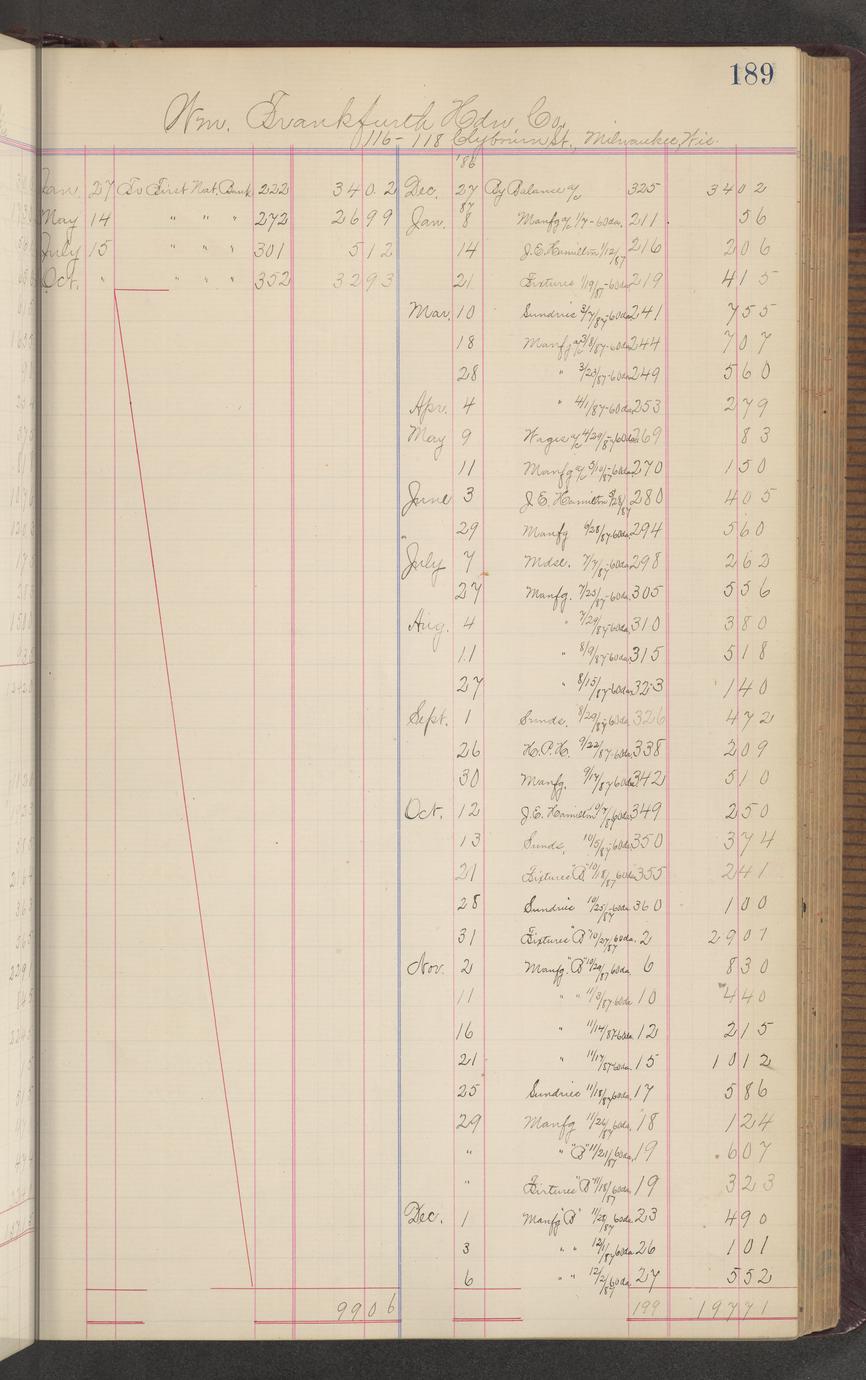 189
Wm. Frankfurth Hdw Co.
116-118 Clybourn St., Milwaukee, Wis.
'86
Jan. 27 To First Nat. Bank 222 3402 Dec. 27 By Balance a/c 325 3402
87
May 14 " " " 272 2699 Jan. 8 Manfg a/c 1/7-60da. 211 56
July 15 " " " 301 512 14 J.E. Hamilton 1/12/87 216 206
Oct. " " " " 352 3293 21 Fixtures 1/19/87-60da 219 415
Mar. 10 Sundrie 3/7/87-60da 241 755
18 Manfg a/c 3/8/87-60da 244 707
28 " 3/23/87-60da 249 560
Apr. 4 " 4/1/87-60da 253 279
May 9 Wages a/c 4/29/87-60da 269 83
11 Manfg a/c 5/10/87-60da 270 150
June 3 J.E. Hamilton 5/28/87 280 405
" 29 Manfg 6/28/87-60da 294 560
July 7 Mdse. 7/7/87-60da 298 262
27 Manfg. 7/25/87-60da. 305 556
Aug. 4 " 7/29/87-60da. 310 380
11 " 8/9/87-60da 315 518
27 " 8/15/87-60da 323 140
Sept. 1 Sunds. 8/29/87-60da 326 472
26 H.P.H. 9/22/87-60da. 338 209
30 Manfg. 9/17/87 60da 342 510
Oct. 12 J.E. Hamilton 349 250
13 Sunds, 10/5/87-60da 350 374
21 Fixtures "B" 10/18/87 60da 355 241
28 Sundrie 10/25/87-60da. 360 100
31 Fixtures "B" 10/27/87 60da. 2 2907
Nov. 2 Manfg. "B" 10/29/87 60da. 6 830
11 " " 11/3/87-60da 10 440
16 " 11/14/87-60da. 12 215
21 " 11/17/87-60da. 15 1012
25 Sundries 11/18/87 60da. 17 586
29 Manfg 11/26/87 60da. 18 124
" " "B" 11/21/87 60da. 19 607
" Fixtures "B" 11/18/87 60da. 19 323
Dec. 1 Manfg "B" 11/28/87 60da. 23 490
3 " " 12/1/87 60da 26 101
6 " " 12/2/87 60da. 27 552
9906 199 19771